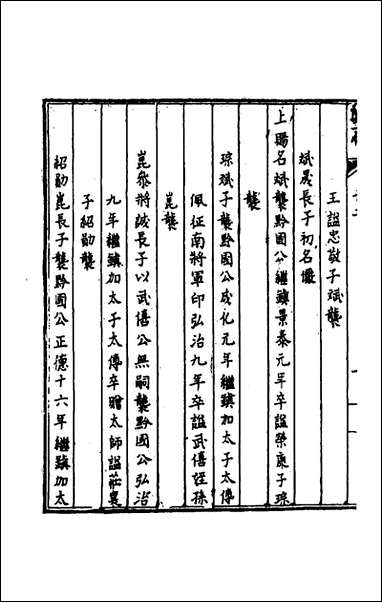 王諡忠敬子斌襲
斌晟長子初名儼
上賜名斌襲黔國公繼鎮景泰元年卒諡榮康子琮
襲
琮斌子襲黔國公成化元年繼鎮加太子太傅
佩征南將軍印弘治九年卒諡武僖姪孫
崑襲
崑叅將誠長子以武僖公無嗣襲黔國公弘治
九年繼鎮加太子太傅卒贈太師諡莊襄
子紹勛襲
紹勛崑長子襲黔國公正德十六年繼鎮加太